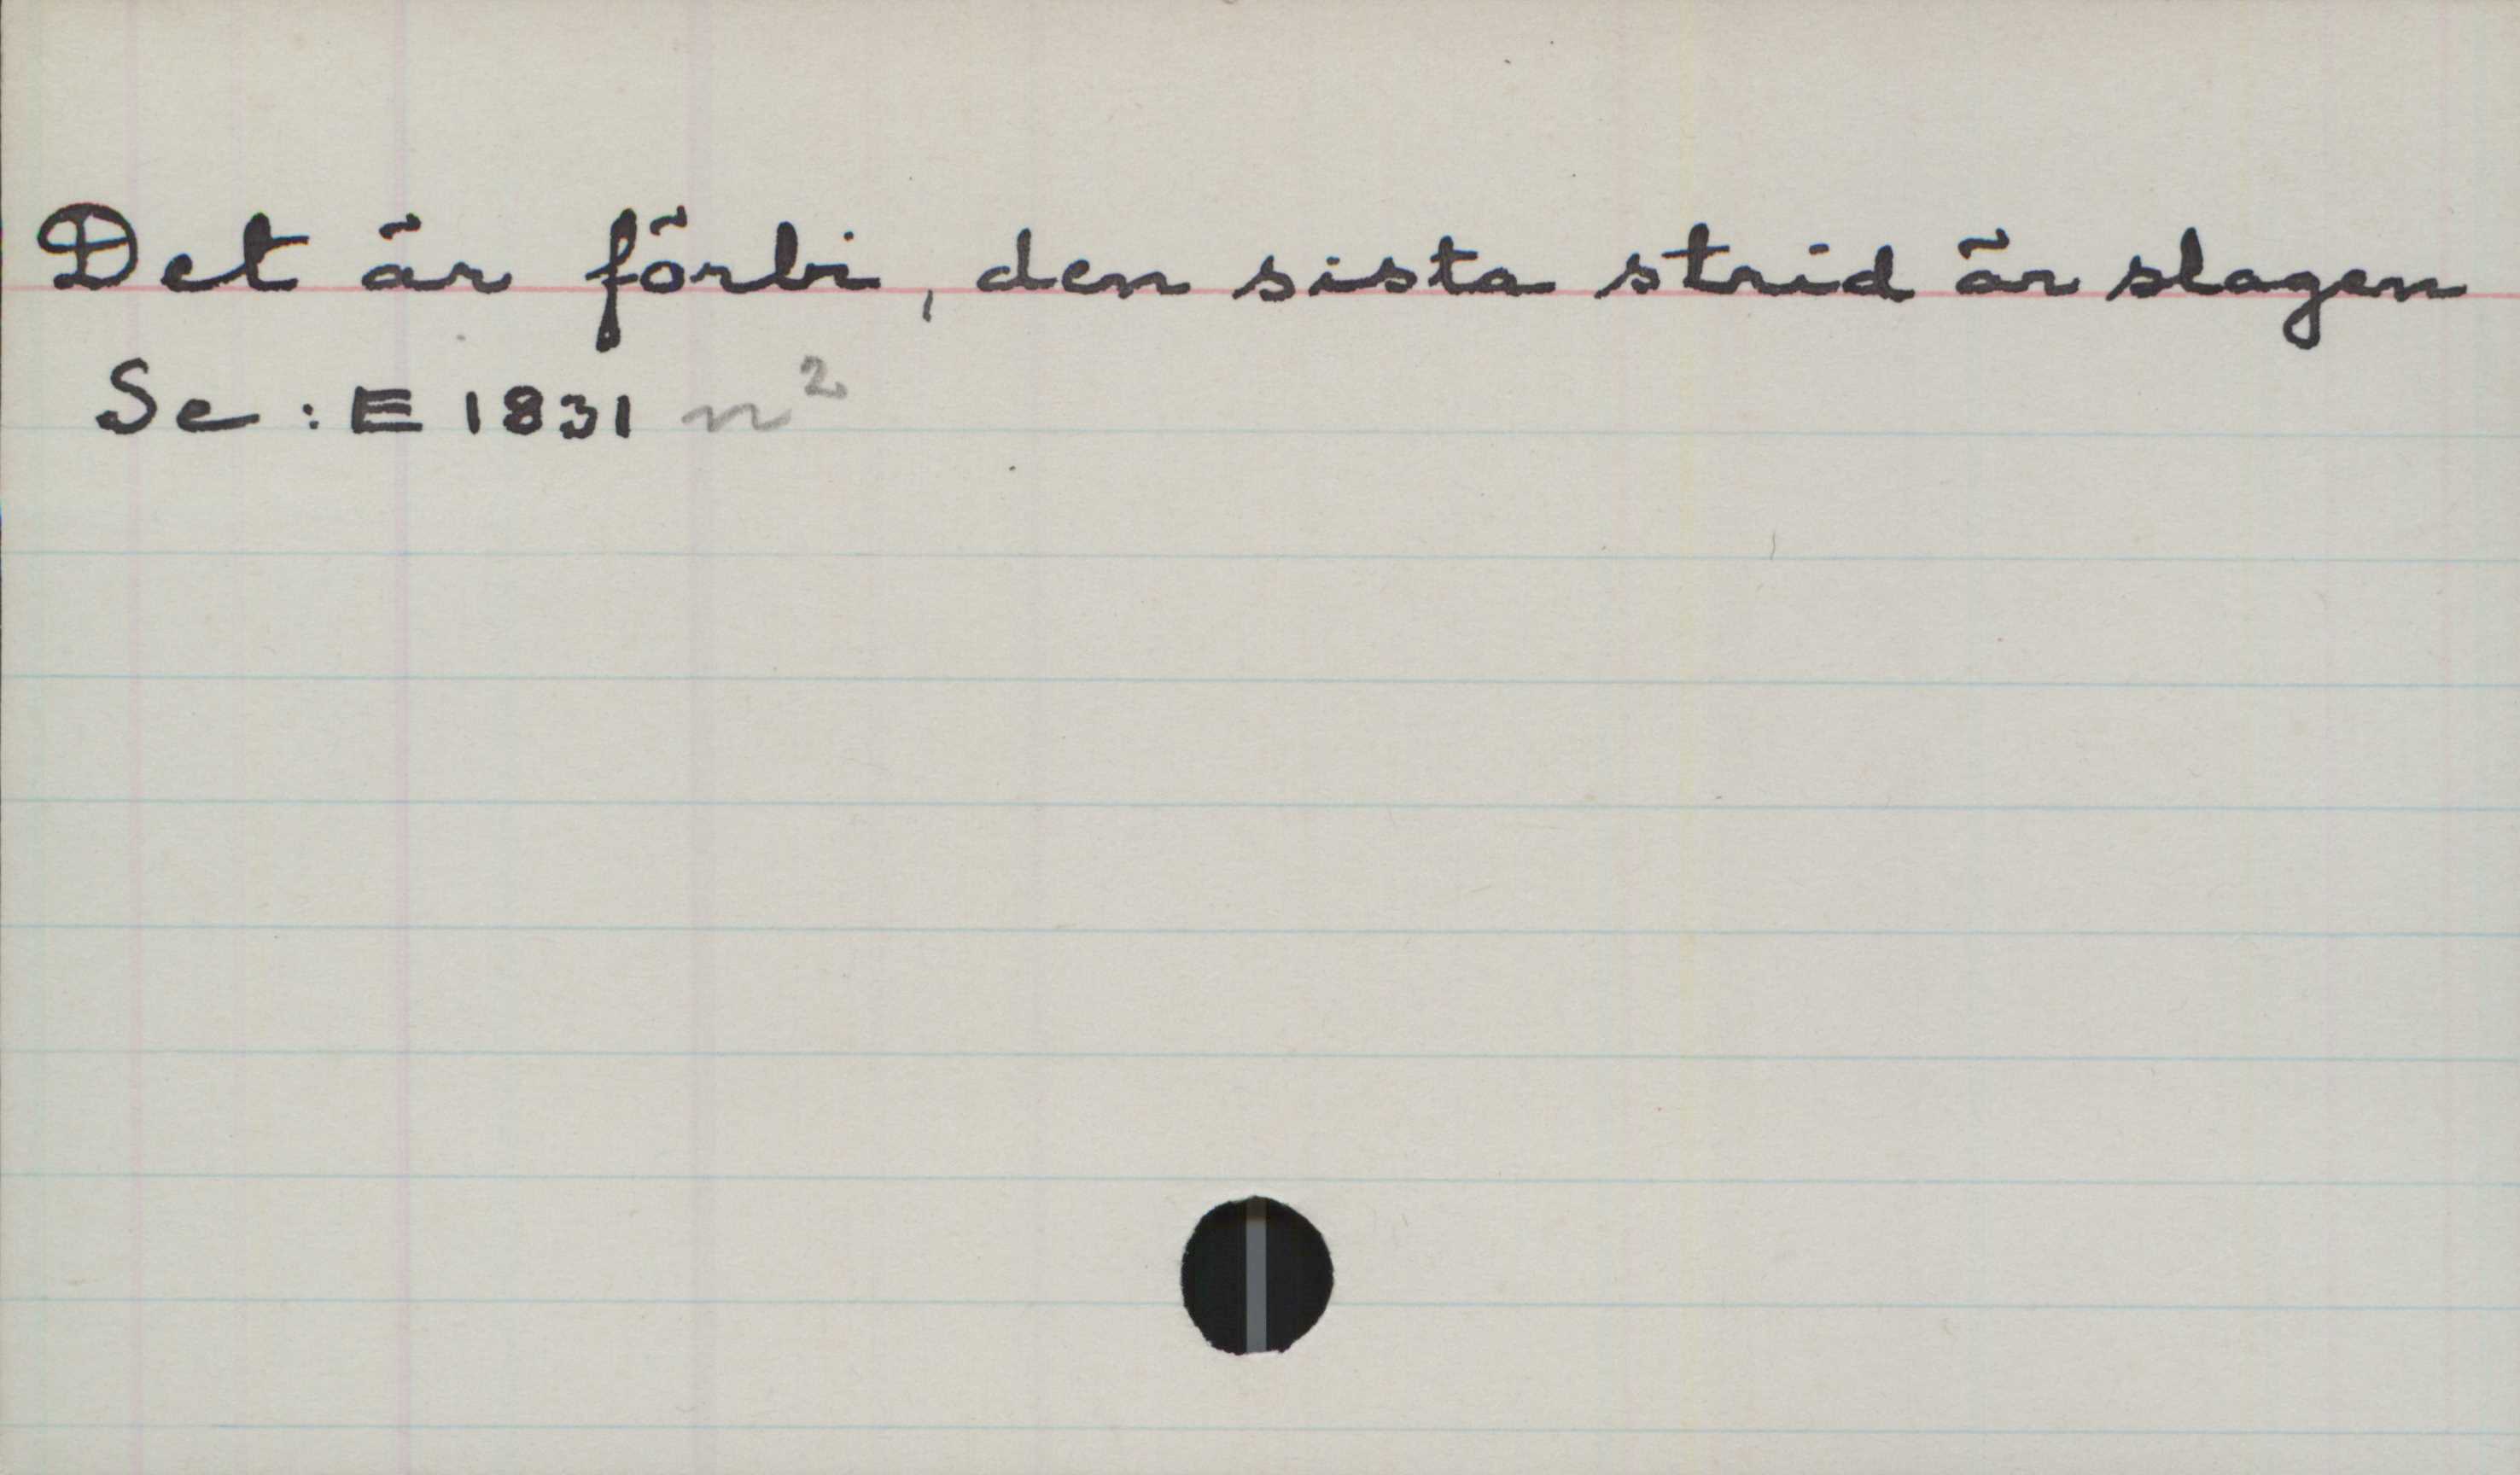 Det är förbi, den sista strid är slagen
Se : E 1831 n²